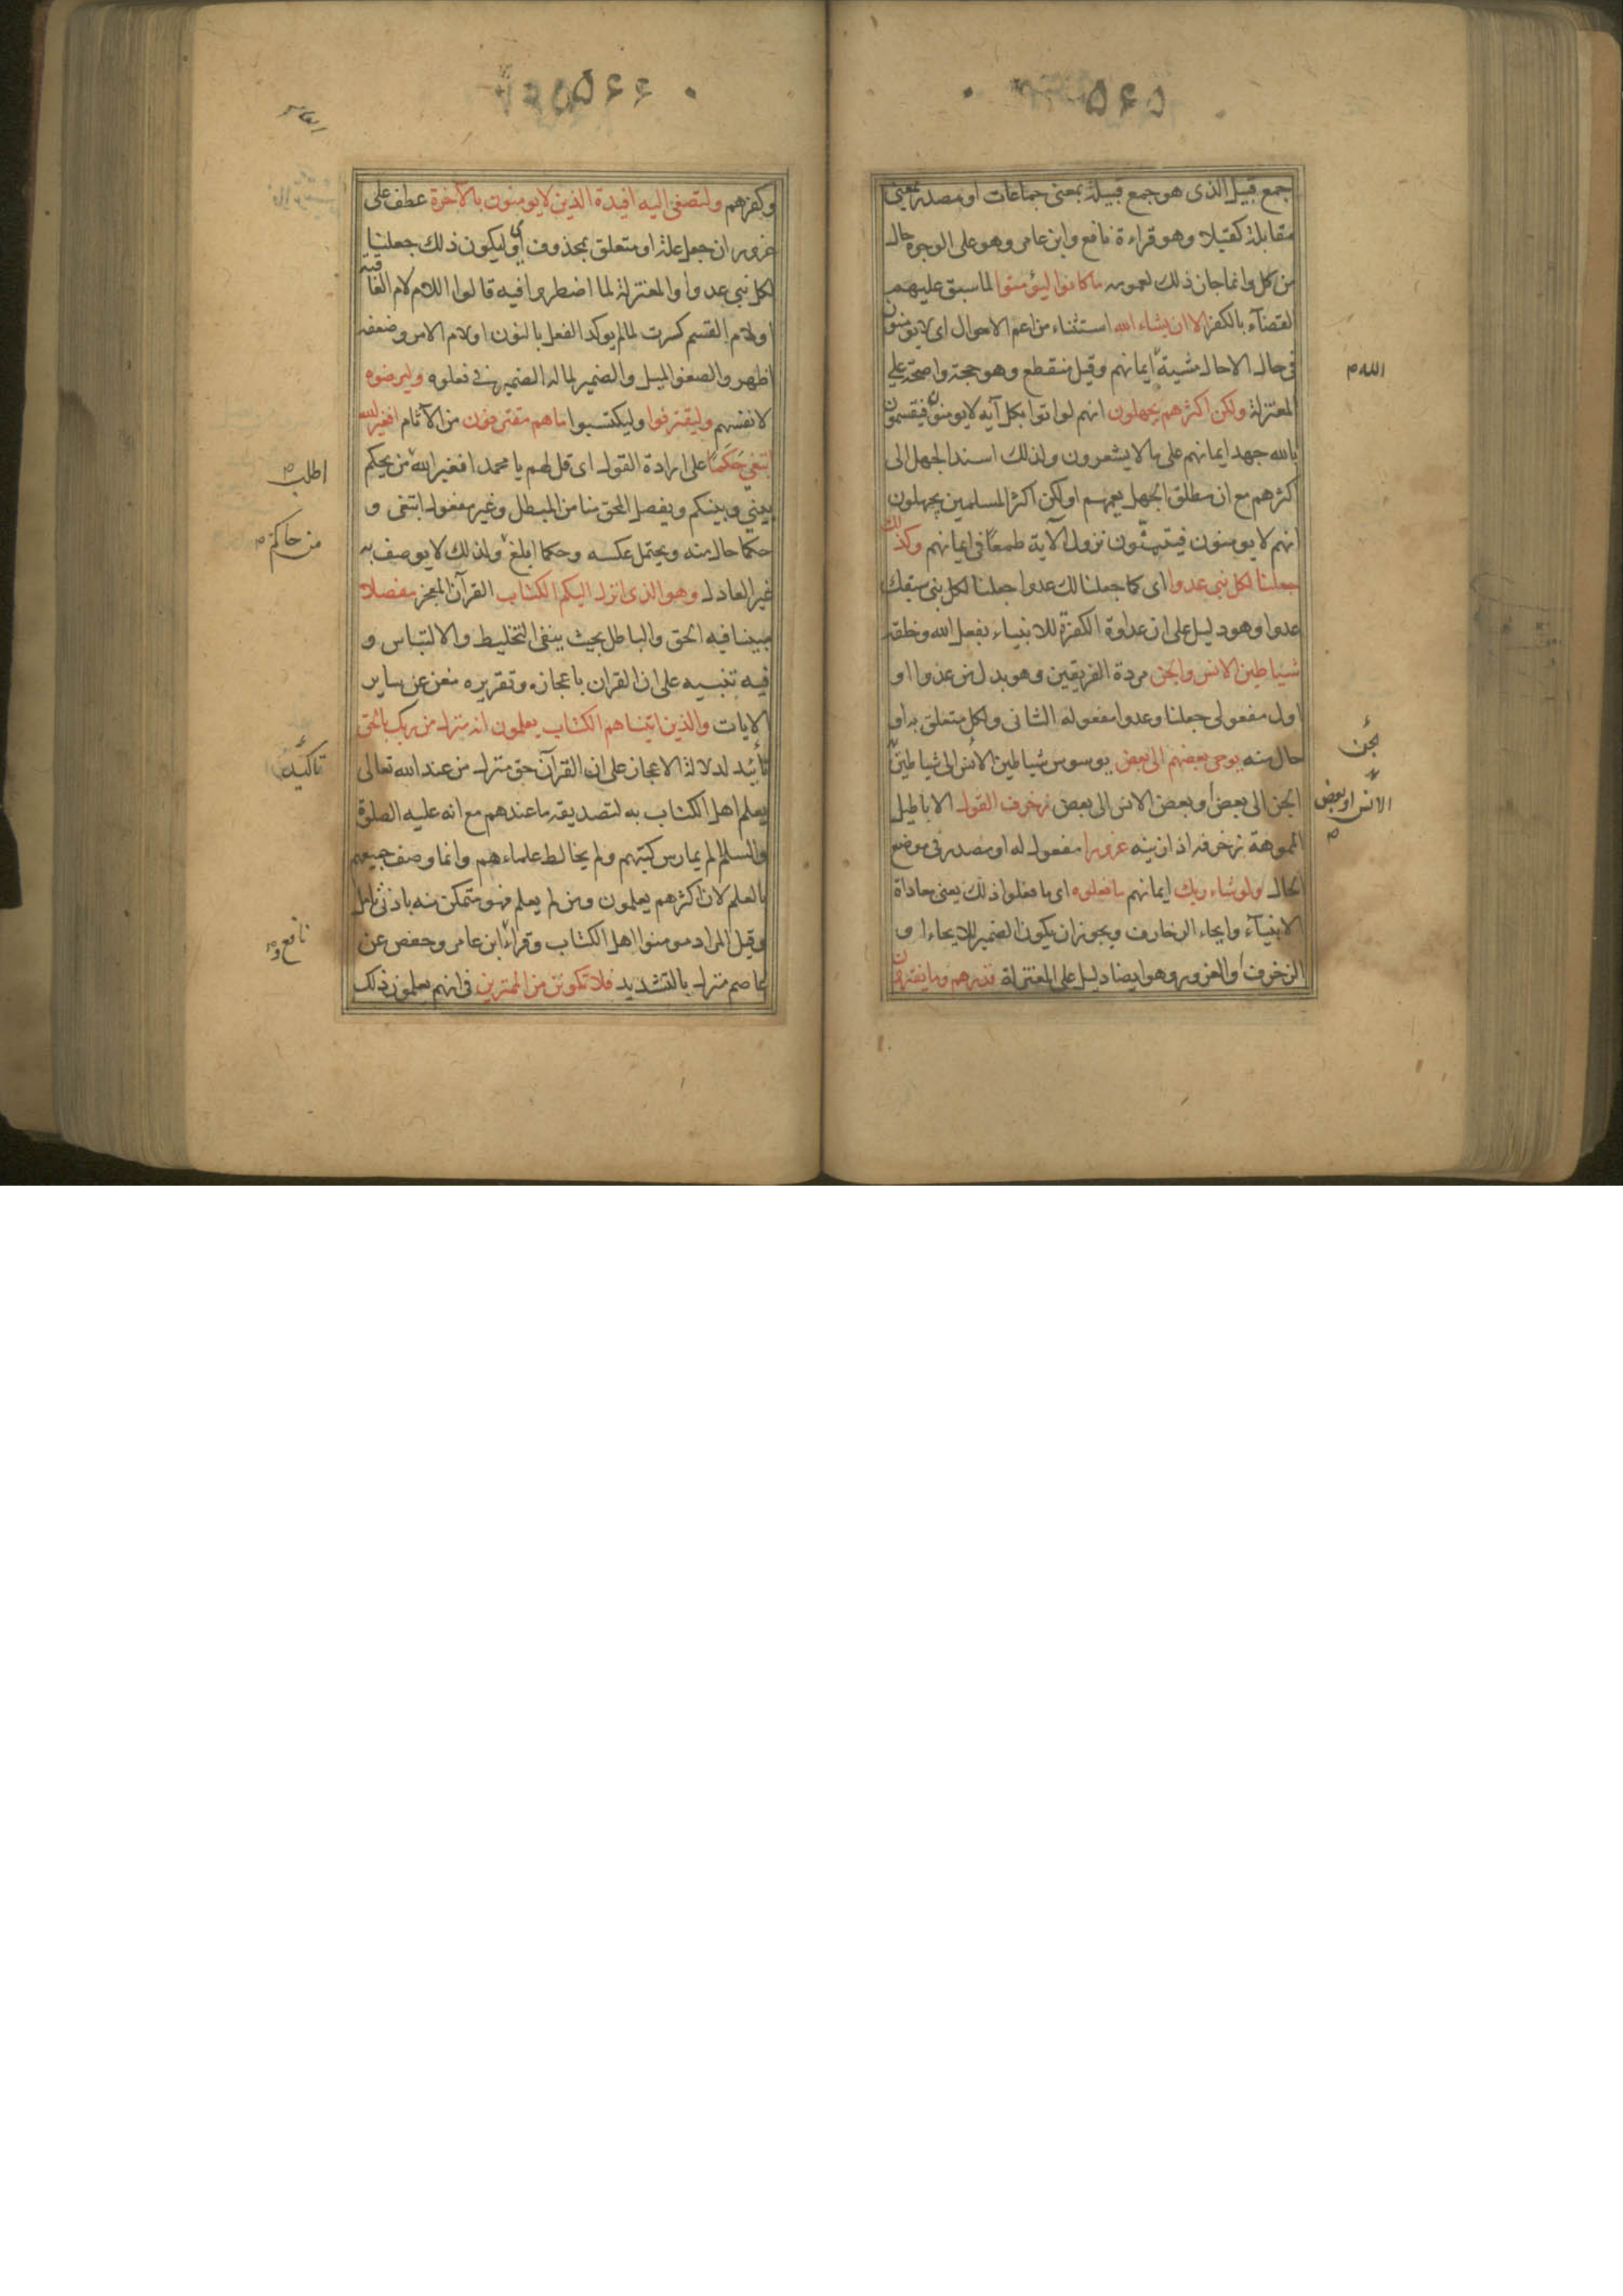 ٥٤٥
جمع قبيل الذى هو جمع قبيلة بمعنى جماعات او مصدر بمعنى
مقابلة كقبيلا وهو قراءة نافع وابن عامر وهو على الوجوه حال
من كل وانما جاز ذلك لعمومه ما كانوا ليؤمنوا لما سبق عليهم
القضاء بالكفر الا ان يشاء الله استثناء من اعم الاحوال اى لا يؤمنون
فى حال الا حال مشية ايمانهم وقيل منقطع وهو حجة واضحة على
المعتزلة ولكن اكثرهم يجهلون انهم لو اتوا بكل آية لا يومنون فيقسمون
بالله جهد ايمانهم على ما لا يشعرون ولذلك اسند الجهل الى
اكثرهم مع ان مطلق الجهل يعمهم او لكن اكثر المسلمين يجهلون
انهم لا يومنون فيتمنون نزول الآية طمعا فى ايمانهم وكذلك
جعلنا لكل نبى عدوا اى كما جعلنا لك عدوا جعلنا لكل نبى سبقك
عدوا وهو دليل على ان عداوة الكفرة للانبياء بفعل الله وخلقه
شياطين الانس والجن مردة الفريقين وهو بدل من عدوا او
اول مفعولى جعلنا وعدوا مفعوله الثانى ولكل متعلق به او
حال منه يوحى بعضهم الى بعض يوسوس شياطين الانس الى شياطين
الجن الى بعض وبعض الانس الى بعض زخرف القول الاباطيل
المموهة زخرفه اذا زينه غرورا مفعول له او مصدر فى موضع
الحال ولو شاء ربك ايمانهم ما فعلوه اى ما فعلوا ذلك يعنى معاداة
الانبياء وايحاء الزخارف ويجوز ان يكون الضمير للايحاء او
الزخرف والغرور وهو ايضا دليل على المعتزلة فذرهم وما يفترون
الله
الجن
الانس او بعض
٥٤٤
وكفرهم ولتصغى اليه افيدة الذين لا يومنون بالآخرة عطف على
غرورا ان جعل علة او متعلق بمحذوف اى وليكون ذلك جعلنا
لكل نبى عدوا والمعتزلة لما اضطروا فيه قالوا اللام لام العاقبة
او لام القسم كسرت لما لم يوكد الفعل بالنون او لام الامر وضعفه
اظهر والصغو الميل والضمير لما له الضمير فى فعلوه وليرضوه
لانفسهم وليقترفوا وليكتسبوا ما هم مقترفون من الآثام افغير الله
ابتغى حكما على ارادة القول اى قل لهم يا محمد افغير الله من يحكم
بينى وبينكم ويفصل المحق منا من المبطل وغير مفعول ابتغى و
حكما حال منه ويحتمل عكسه وحكما ابلغ ولذلك لا يوصف به
غير العادل وهو الذى انزل اليكم الكتاب القرآن المعجز مفصلا
مبينا فيه الحق والباطل بحيث ينفى التخليط والالتباس و
فيه تنبيه على ان القران باعجازه وتقريره مغن عن ساير
الايات والذين اتيناهم الكتاب يعلمون انه منزل من ربك بالحق
تأييد لدلالة الاعجاز على ان القرآن حق منزل من عند الله تعالى
يعلم اهل الكتاب به لتصديقه ما عندهم مع انه عليه الصلوة
والسلم لم يمارس كتبهم ولم يخالط علماءهم وانما وصف جميعهم
بالعلم لان اكثرهم يعلمون ومن لم يعلم فهو متمكن منه بادنى تأمل
وقيل المراد مومنوا اهل الكتاب وقرا ابن عامر وحفص عن
عاصم منزل بالتشديد فلا تكونن من الممترين فى انهم يعلمون ذلك
اطلب
من حاكم
تاكيد
نافع و